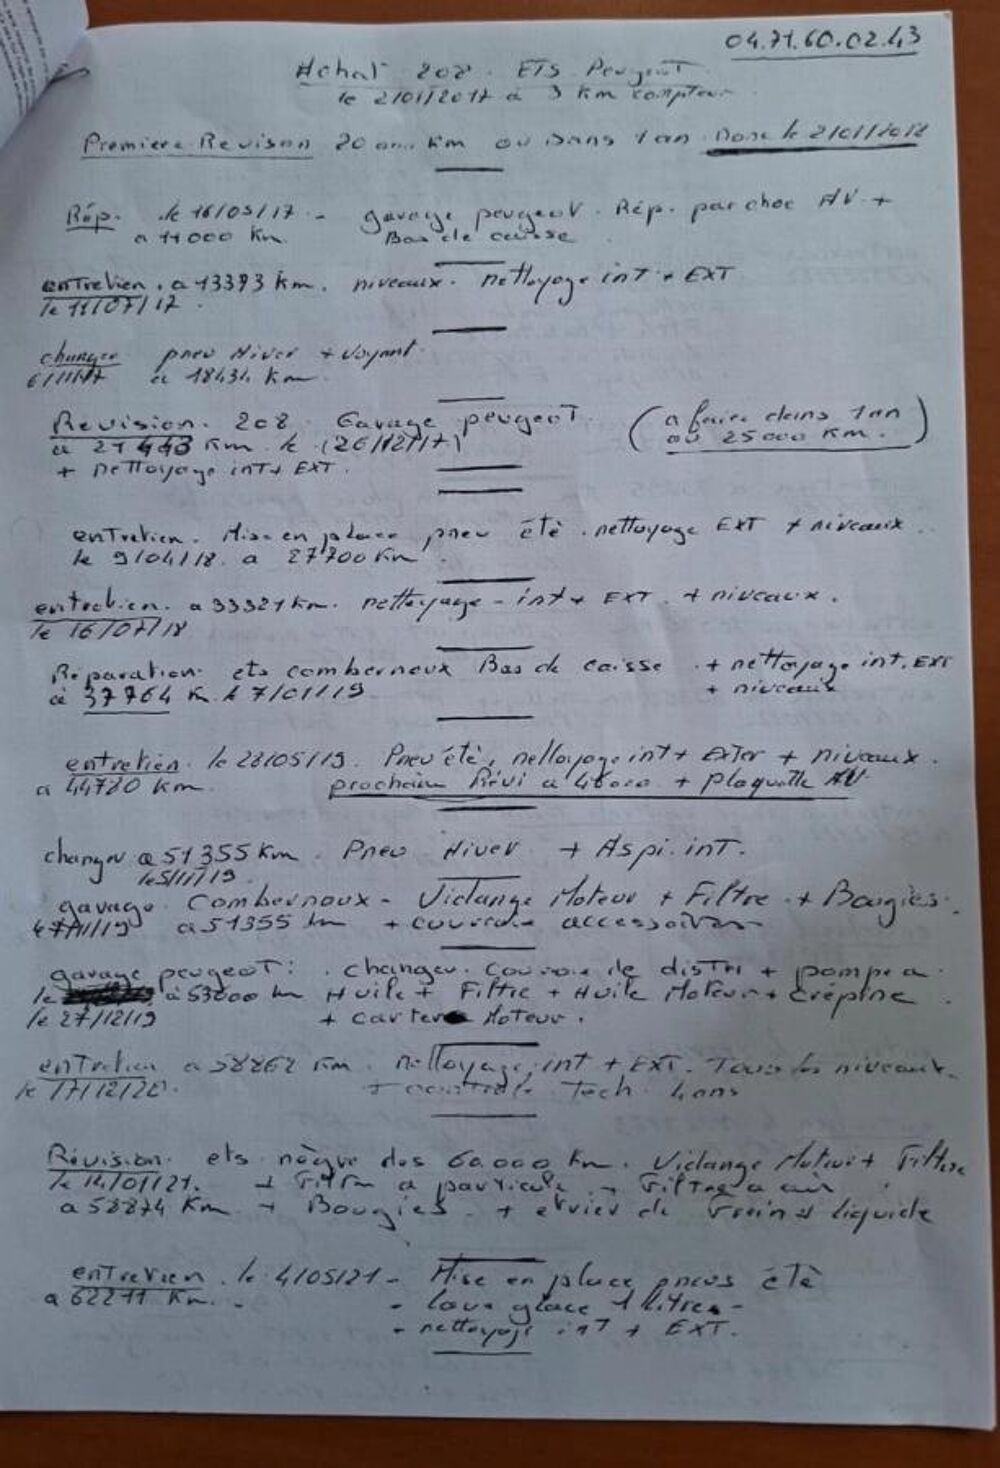 04.71.60.02.43
Achat 208. ETS Peugeot
le 2/01/2017 à 3 Km compteur
Premiere Revison 20 000 Km ou Dans 1 an Donc le 2/01/2018
Rép. le 16/05/17 - garage peugeot. Rép. parchoc AV +
a 11000 Km. Bas de caisse
entretien. a 13393 Km. niveaux. nettoyage int + EXT
le 11/07/17.
changer pneu Hiver + Voyant
6/11/17 a 18434 Km.
Revision. 208 Garage peugeot. (a faire dans 1 an
à 21443 Km. le (26/12/17) ou 25000 Km.)
+ nettoyage int + EXT.
entretien. Mise en place pneu été. nettoyage EXT + niveaux.
le 9/04/18. a 27700 Km
entretien. a 33321 Km. nettoyage - int + EXT. + niveaux.
le 16/07/18
Réparation. ets combernoux Bas de caisse + nettoyage int. EXT
à 37764 K. le 7/01/19 + niveaux
entretien. le 28/05/19. Pneu été, nettoyage int + Exter + niveaux.
a 44720 Km. prochaine Révi a 46000 + plaquette AV.
changer a 51355 Km. Pneu Hiver + Aspi. int.
le 5/11/19
garage. Combernoux - Vidange Moteur + Filtre + Bougies.
/11/19 a 51355 km + courroie accessoires
garage peugeot: . changer. Courroie de distri + pompe a
le à 53000 km Huile + Filtre + Huile Moteur + crépine.
le 27/12/19 + carter Moteur.
entretien a 58862 Km. nettoyage int + EXT. Tous les niveaux.
le 17/12/20. + controle Tech. 4 ans
Révision. ets nègre des 60.000 Km. Vidange Moteur + Filtre
le 14/01/21. + Filtre a particule + Filtre a air
a 58874 Km + Bougies. + etrier de Frein + liquide
entretien. le 4/05/21 - Mise en place pneus été
a 62211 Km. - lave glace 1 litre -
- nettoyage int + EXT.